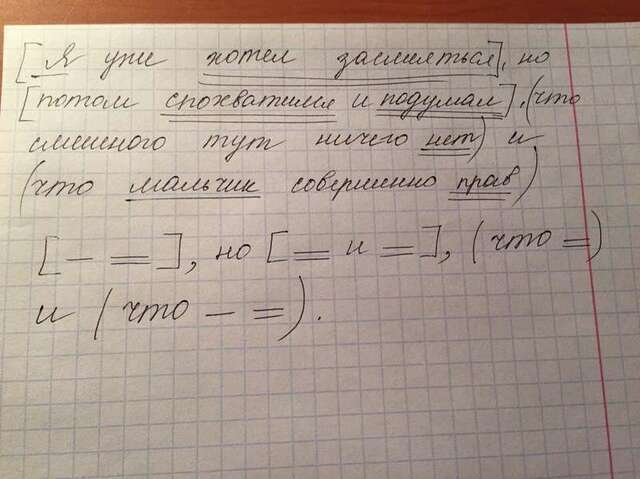 [Я уже хотел засмеяться], но
[потом спохватился и подумал], (что
смешного тут ничего нет) и
(что мальчик совершенно прав)
[– =], но [= и =], (что =)
и (что – =).